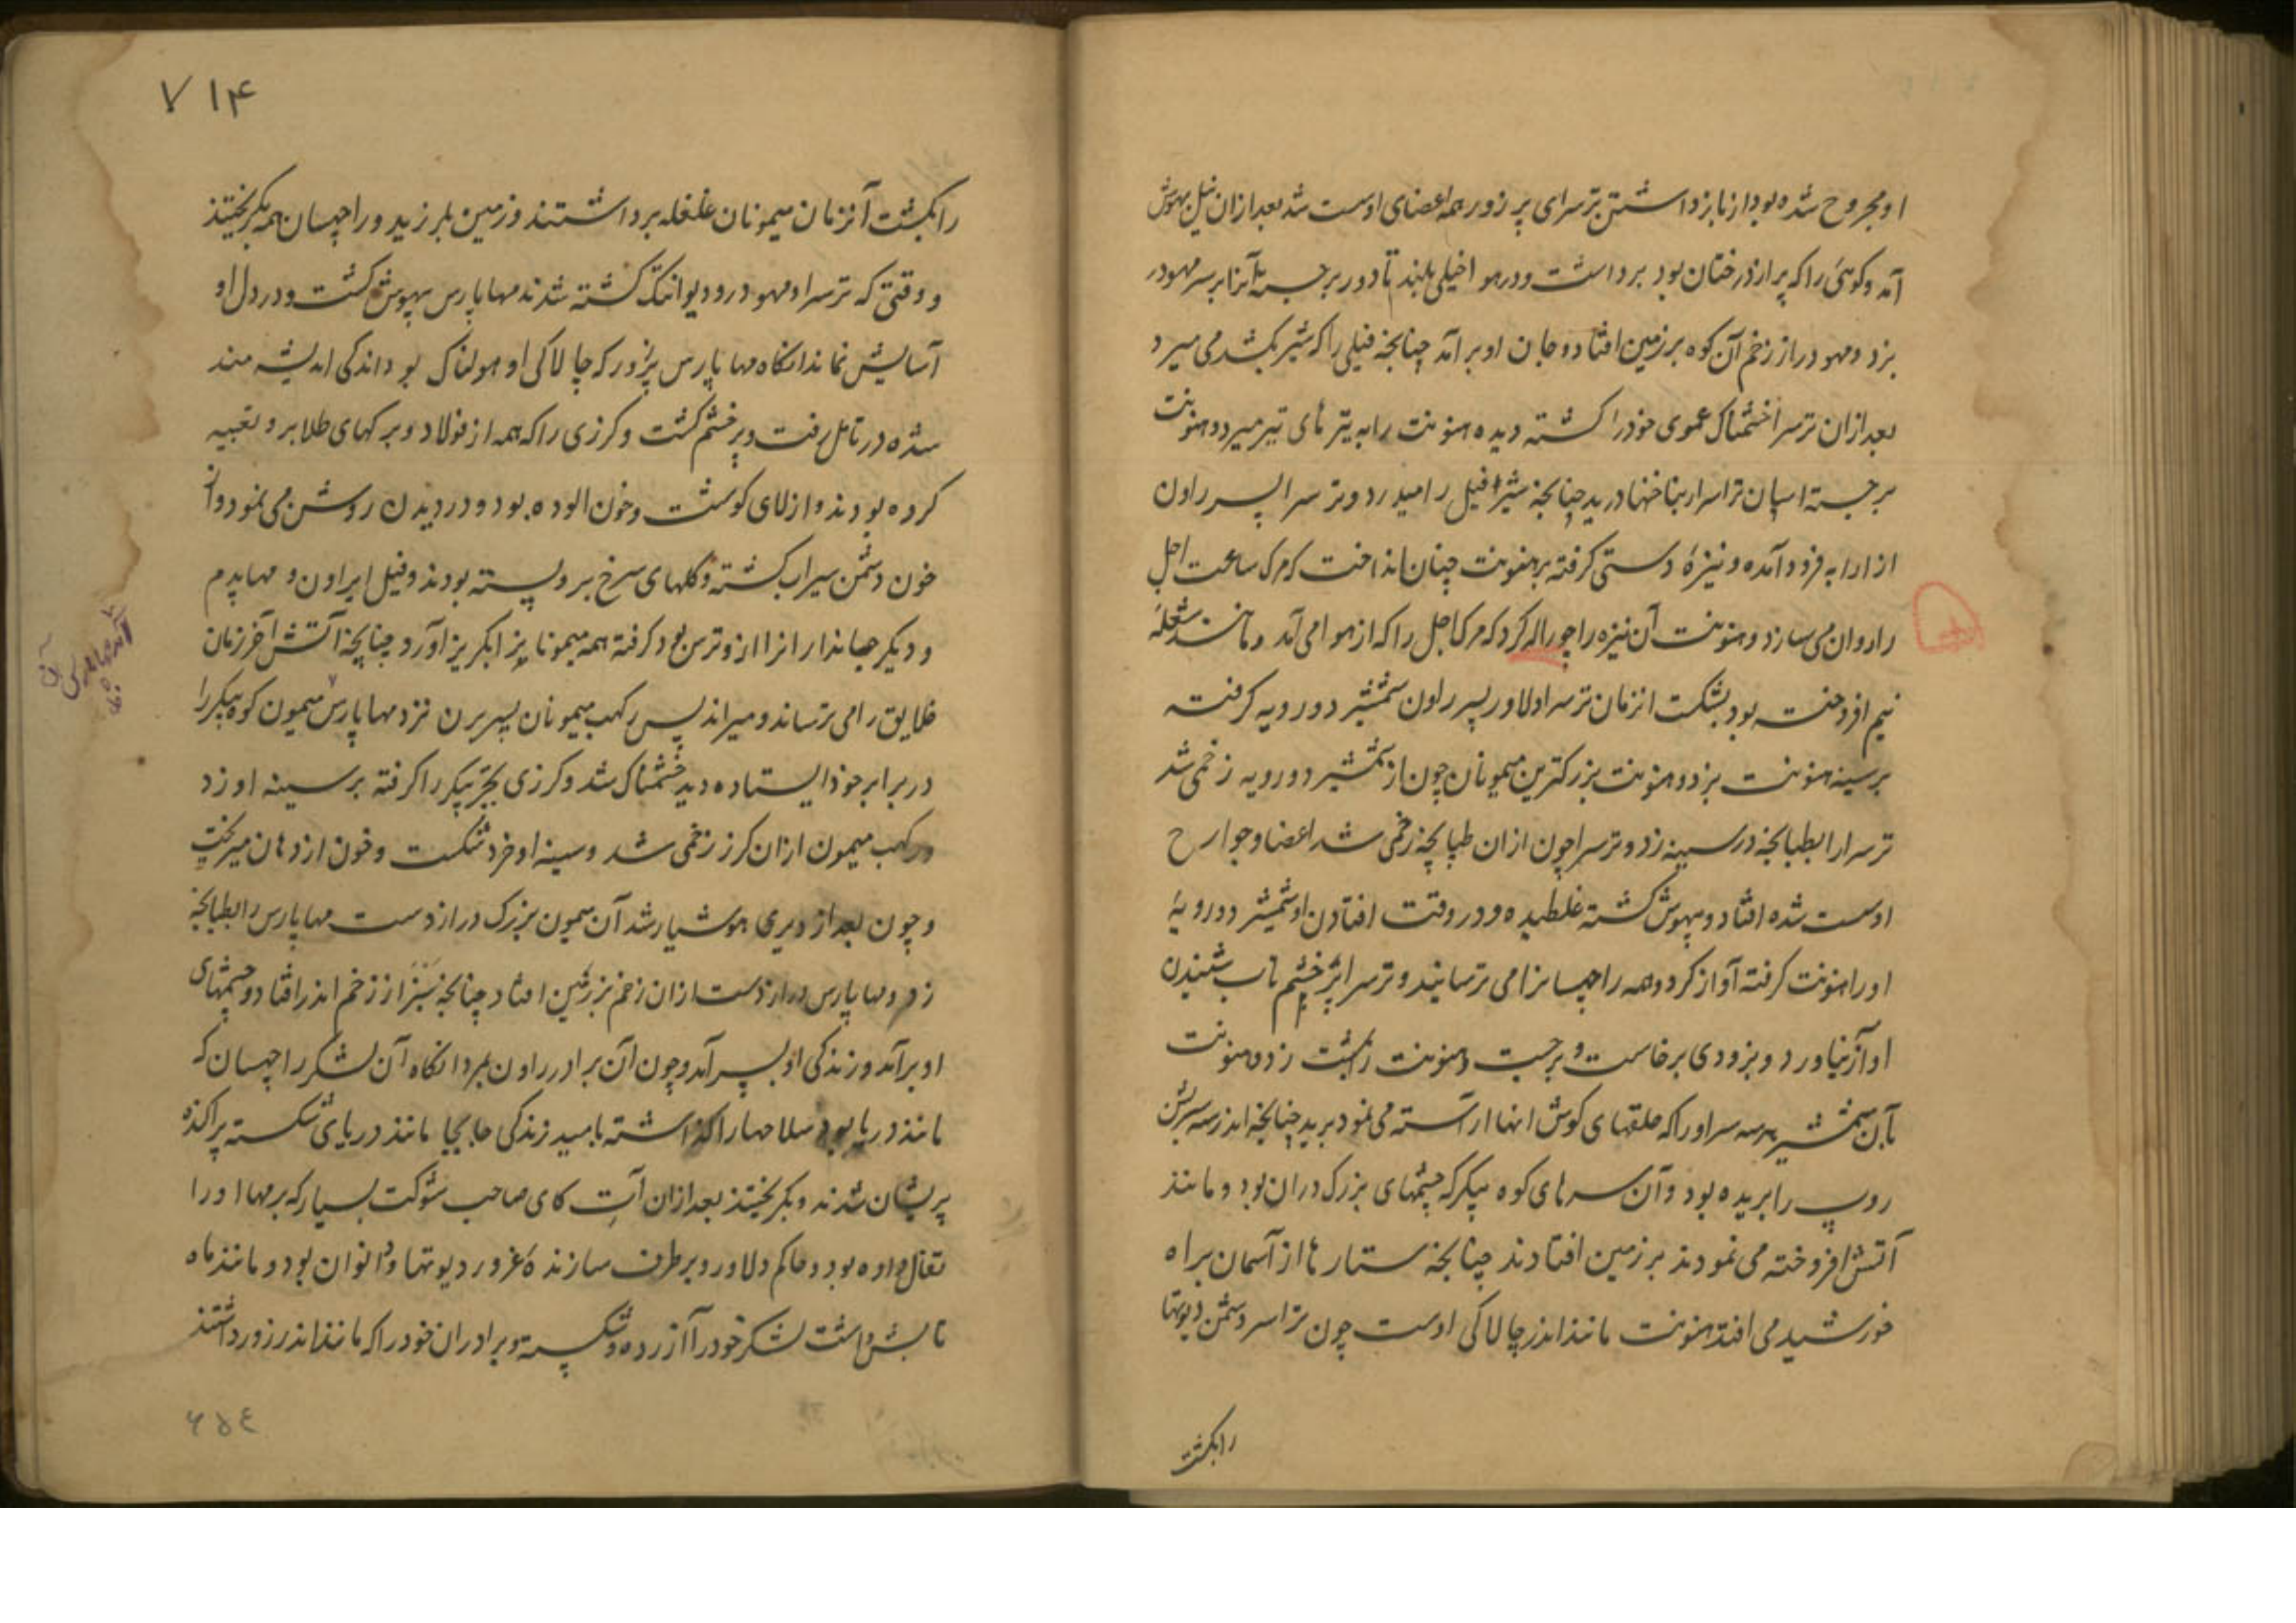 او مجروح شده بود از نابز داشتن ترسرای پر زور همه اعضای او سست شد بعد ازان نیل بهوش
آمد و کوهی را که پر از درختان بود برداشت و در هوا خیلی بلند تا دور برجسته آنرا بر سر مهودر
بزد و مهودر از زخم آن کوه بر زمین افتاد و جان او برآمد چنانچه فیلی را که شیر بکشد می میرد
بعد ازان ترسرا خشمناک عموی خود را کشته دیده هنونت را به تیر های تیز میزد و هنونت
برجسته اسپان تراسرا ربناخنها درید چنانچه شیر فیل را میدرد و ترسرا پسر راون
از ارابه فرود آمده و نیزهٔ دستی گرفته بر هنونت چنان انداخت که مرک ساعت اجل
را روان می سازد و هنونت آن نیزه را چوراله کرد که مرک اجل را که از هوا می آمد و مانند شعلهٔ
نیم افروخته بود بشکست انزمان ترسرا دلاور پسر راون شمشیر دورویه گرفته
بر سینه هنونت بزد و هنونت بزرکترین میمونان چون از شمشیر دورویه زخمی شد
ترسرا را بطپانچه در سینه زد و ترسرا چون ازان طپانچه زخمی شد اعضا و جوارح
او سست شده افتاد و بیهوش کشته غلطیده و در وقت افتادن او شمشیر دورویهٔ
او را هنونت گرفته آواز کرد و همه راچهسانرا می ترسانید و ترسرا پر خشم تاب شنیدن
آواز نیاورد و بزودی برخاست و برجست و هنونت را مشت زد و هنونت
بآن شمشیر هر سه سر او را که حلقهای کوش انها آراسته می نمود برید چنانچه اندر سه سر بشن
روپ را بریده بود و آن سرهای کوه پیکر که چشمهای بزرک دران بود و مانند
آتش افروخته می نمودند بر زمین افتادند چنانچه ستارها از آسمان براه
خورشید می افتد هنونت مانند اندر چالاکی اوست چون تراسر دشمن دیوتها
رابکشت
۷۱۴
رابکشت آنزمان میمونان غلغله برداشتند و زمین بلرزید و راچهسان همه بکریختند
و وقتی که ترسرا و مهودر و دیوانتک کشته شدند مهاپارس بیهوش کشت و در دل او
آسایش نماند انکاه مهاپارس پرزور که چالاکی او هولناک بود اندکی اندیشه مند
شده در تامل رفت و پر خشم کشت و کرزی را که همه از فولاد و برکهای طلا برو تعبیه
کرده بودند و از لای کوشت و خون الوده بود و در دیدن روشن می نمود و از
خون دشمن سیراب کشته و کلهای سرخ برو بسته بودند و فیل ایراون و مهاپدم
و دیکر جانداران را ازو ترس بود کرفته همه میمونانرا بکریز آورد چنانچه آتش آخر زمان
خلایق را می ترساند و میراند پس رکهب میمونان پسر برن نزد مهاپارس میمون کوه پیکر را
در برابر خود ایستاده دید خشمناک شد و کرزی بجر پیکر را کرفته بر سینه او زد
و رکهب میمون ازان کرز زخمی شد و سینه او خرد شکست و خون از دهان میریخت
و چون بعد از دیری هوشیار شد آن میمون بزرک دراز دست مهاپارس را بطپانچه
زد و مهاپارس دراز دست ازان زخم بر زمین افتاد چنانچه از زخم اندر افتاد و چشمهای
او برآمد و زندکی او بسر آمد و چون آن برادر راون بمرد انکاه آن لشکر راچهسان که
مانند دریا بود سلاحها را کذاشته بامید زندکی جابجا مانند دریای شکسته پراکنده
پریشان شدند و بکریختند بعد ازان آت کای صاحب شوکت بسیار که برمها او را
تفال داده بود و حاکم دلاور و برطرف سازندهٔ غرور دیوتها و دانوان بود و مانند ماه
تابش داشت لشکر خود را آزرده و شکسته و برادران خود را که مانند اندر زور داشتند
۶۵۴